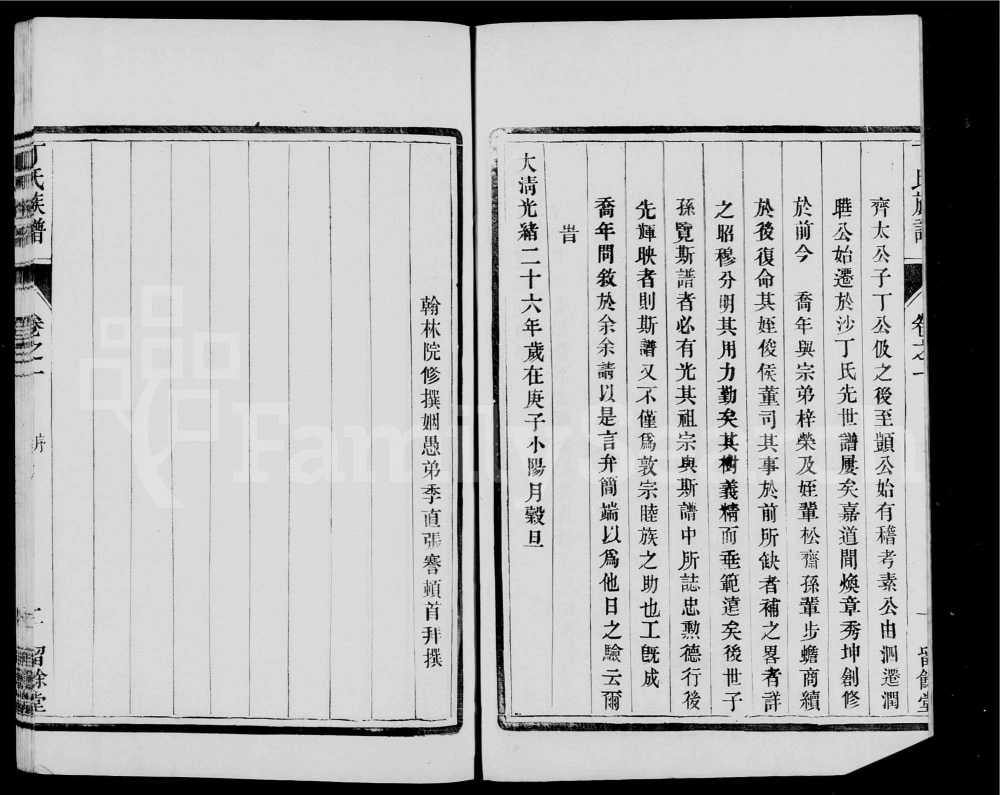 齊太公子丁公伋之後至顗公始有稽考素公由泗遷潤
聯公始遷於沙丁氏先世譜屢矣嘉道間煥章秀坤創修
於前今 喬年與宗弟梓榮及姪輩松齋孫輩步蟾商續
於後復命其姪俊侯董司其事於前所缺者補之畧者詳
之昭穆分明其用力勤矣其樹義精而垂範遠矣後世子
孫覽斯譜者必有光其祖宗與斯譜中所誌忠勲德行後
先輝映者則斯譜又不僅爲敦宗睦族之助也工旣成
喬年問敘於余余請以是言弁簡端以爲他日之驗云爾
旹
大淸光緖二十六年歲在庚子小陽月穀旦
翰林院修撰姻愚弟季直張謇頓首拜撰
丁氏族譜
卷之一
二
留餘堂
FamilySearch